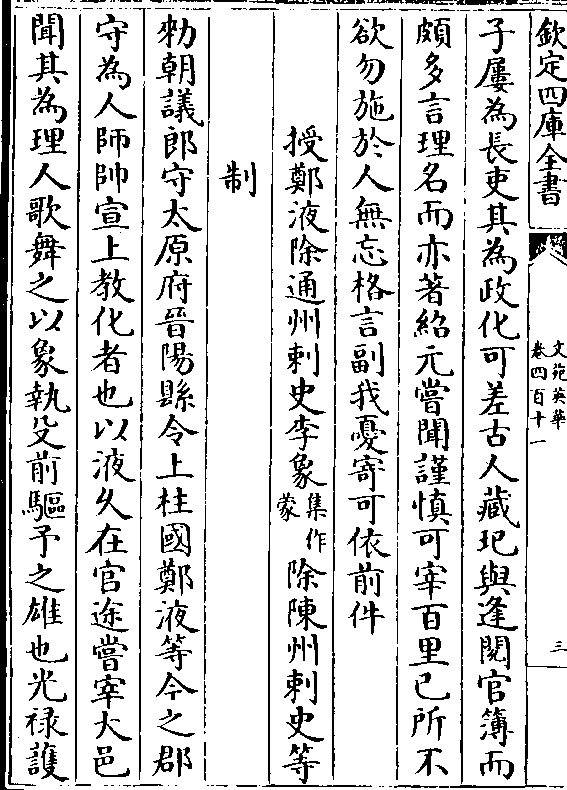 欽定四庫全書
文苑英華
卷四百十一
三
子屢為長吏其為政化可差古人藏𤣥與逢閱官簿而
頗多言理名而亦著紹元嘗聞謹慎可宰百里已所不
欲勿施於人無忘格言副我憂寄可依前件
授鄭液除通州刺史李象集作䝉除陳州刺史等
制
勑朝議郎守太原府晉陽縣令上柱國鄭液等今之郡
守為人師帥宣上教化者也以液久在官途嘗宰大邑
聞其為理人歌舞之以象執殳前驅予之雄也光禄護